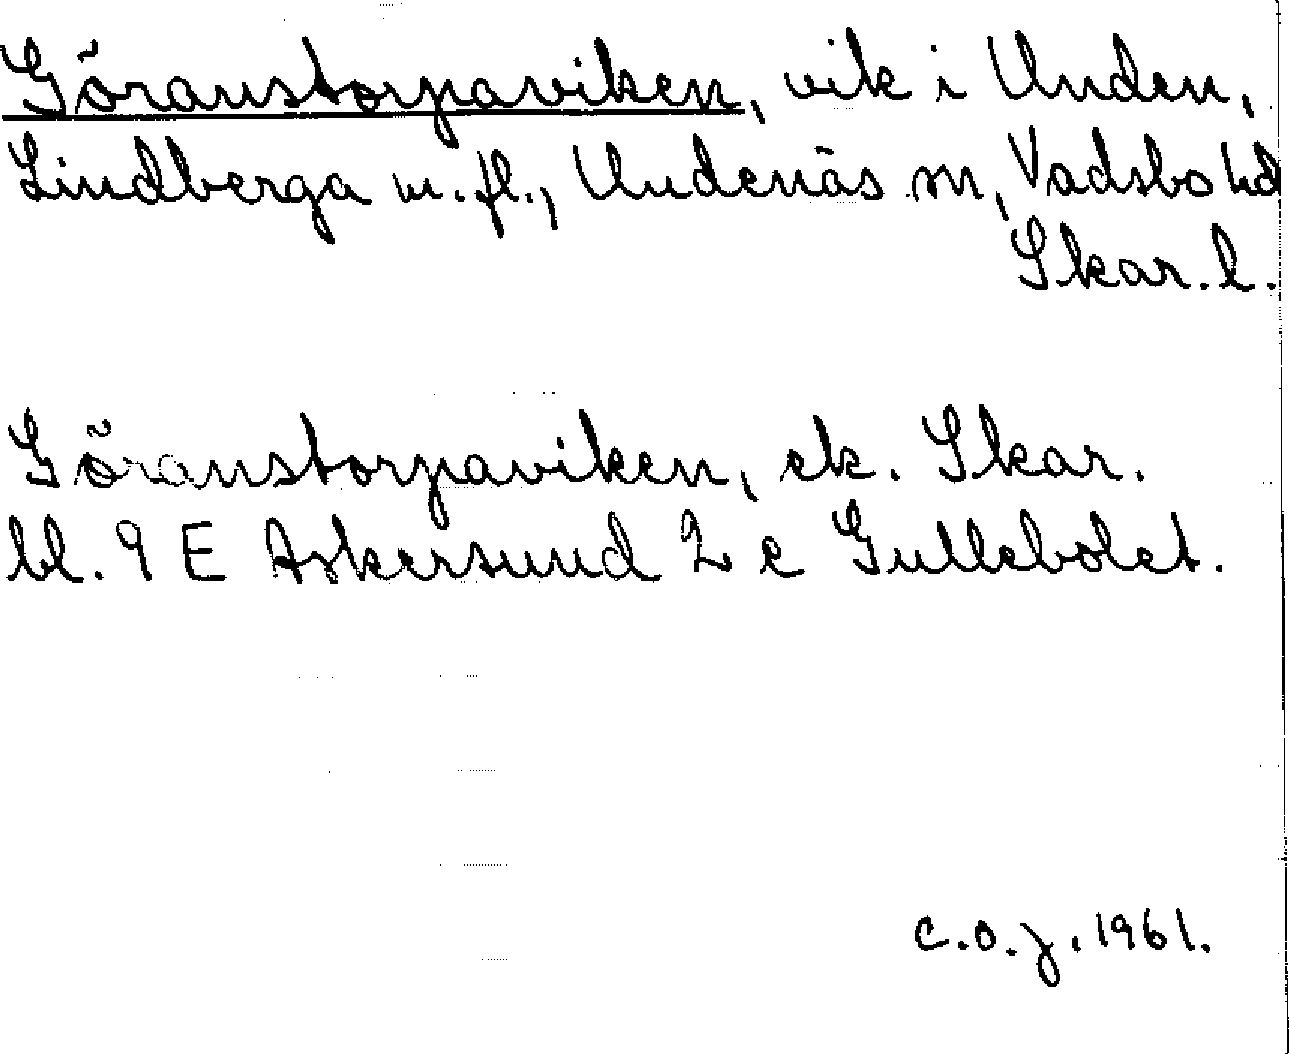 Göranstorpaviken, vik i Unden,
Lindberga m.fl., Undenäs sn, Vadsbo hd
Skar. l.
Göranstorpaviken, ek. Skar.
bl. 9 E Askersund 2 c Gullebolet.
C.O.J. 1961.